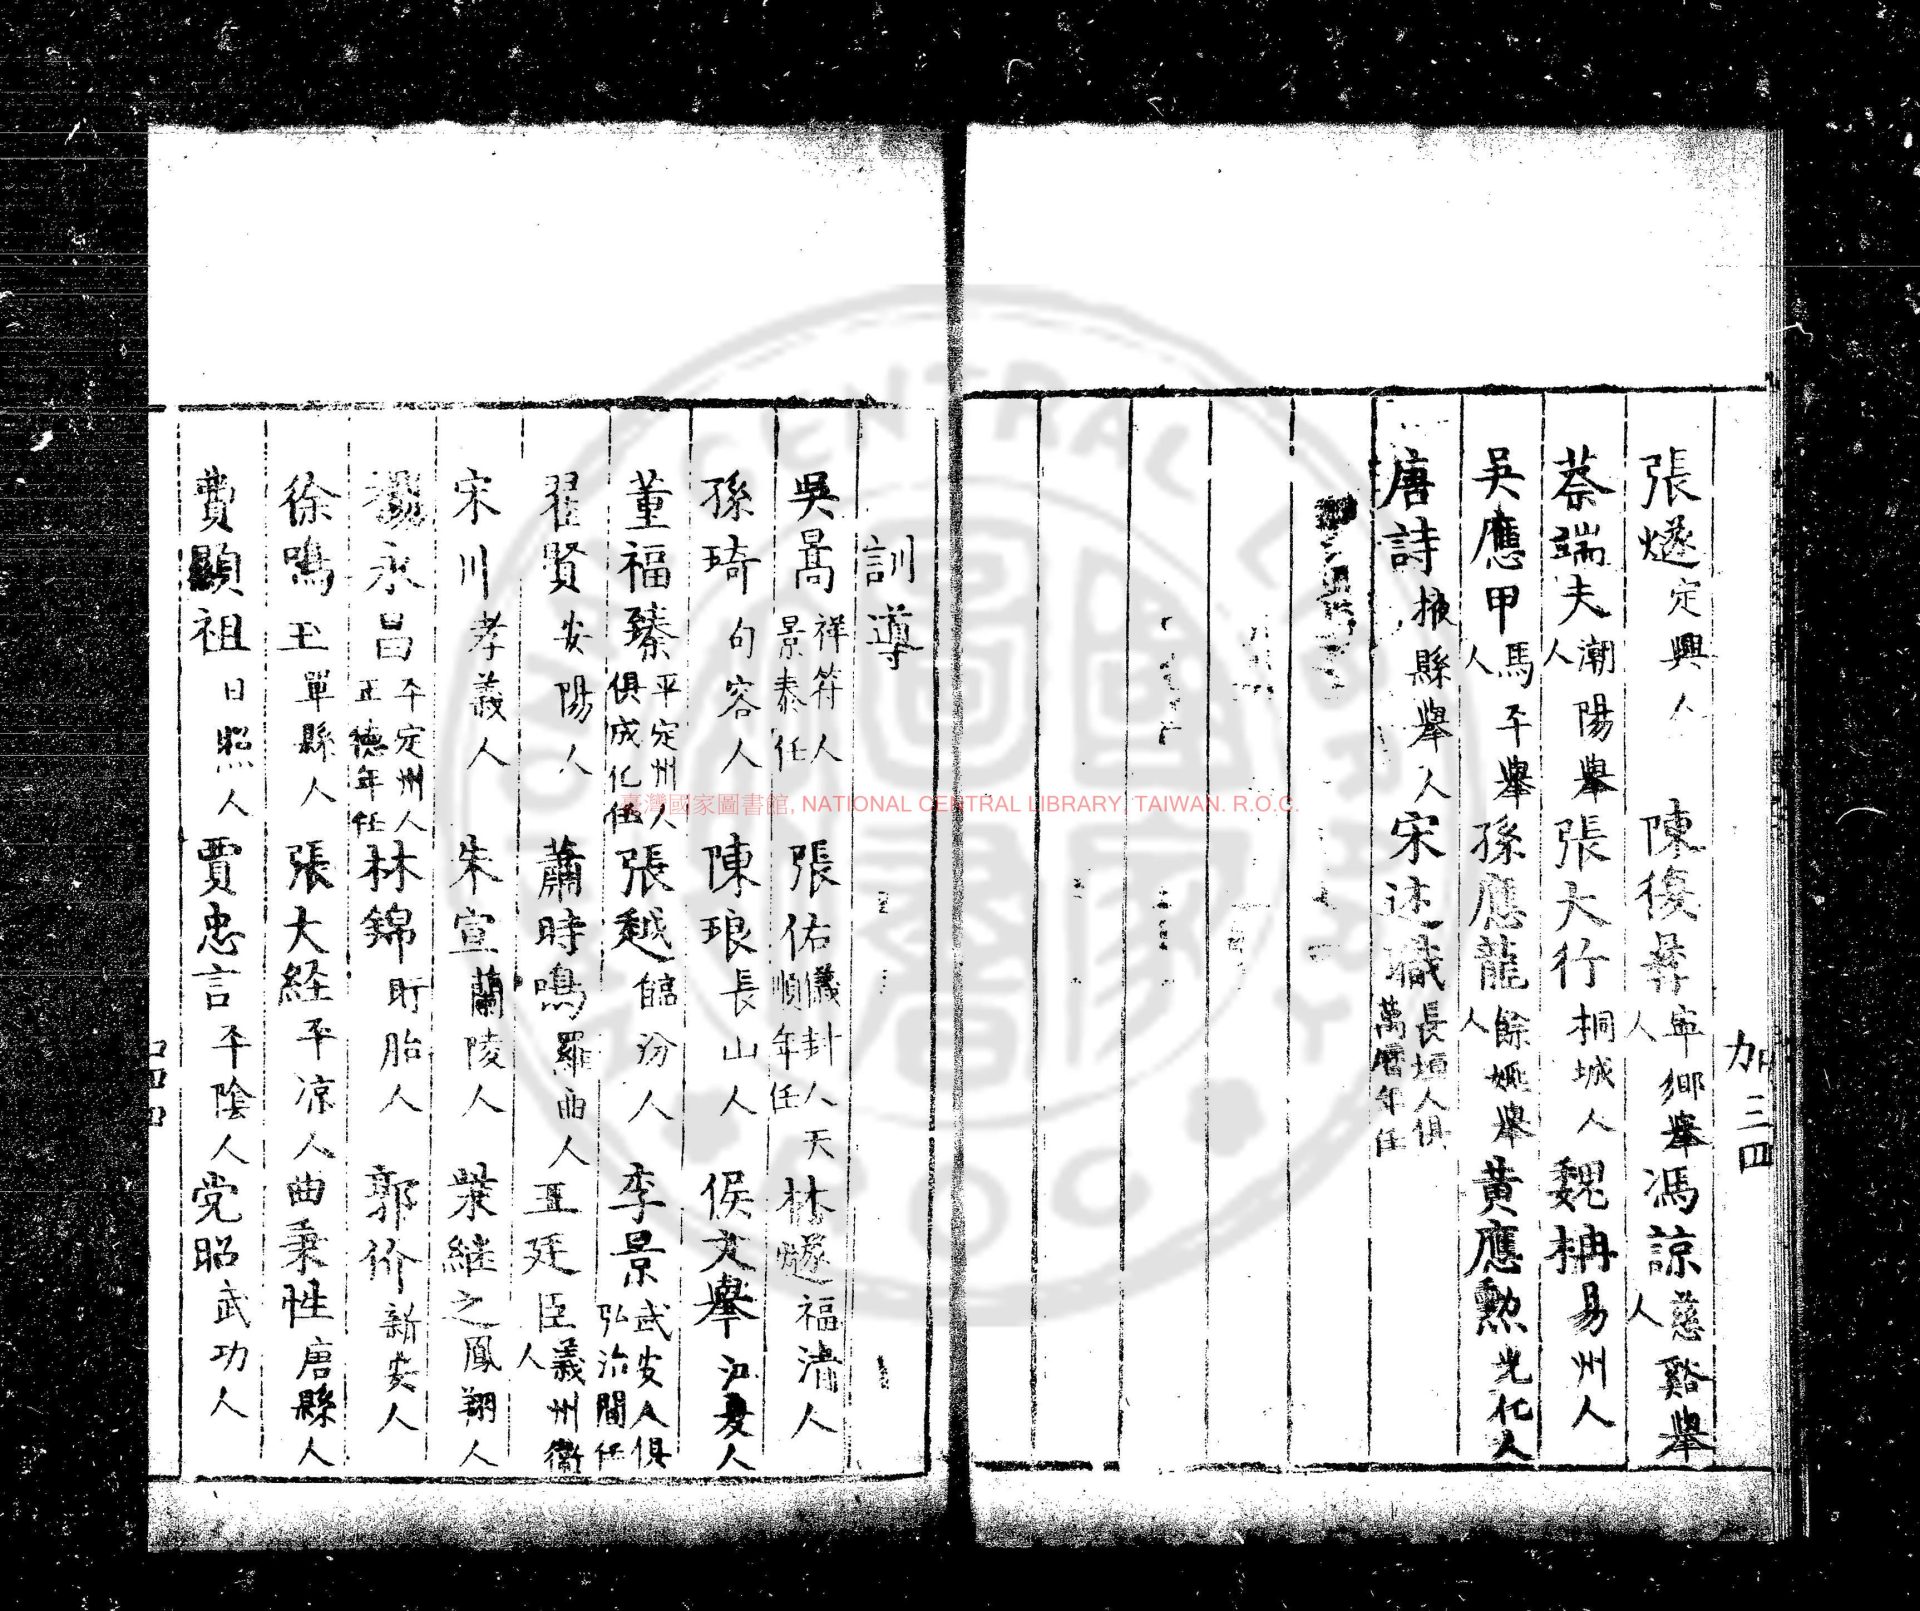 張燧定興人 陳復彞寧鄉舉人 馮諒慈谿舉人
蔡端夫潮陽舉人 張大行桐城人 魏柟易州人
吳應甲馬平舉人 孫應龍餘姚舉人 黃應勲光化人
唐詩掖縣舉人 宋述職長垣人俱萬曆年任
加三四
訓導
吳暠祥符人景泰任 張佑儀封人天順年任 林燧福清人
孫琦句容人 陳琅長山人 侯文舉江夏人
董福臻平定州人俱成化任 張越臨汾人 李景武安人俱弘治間任
翟賢安陽人 蕭時鳴羅甸人 王廷臣義州衛人
宋川孝義人 朱宣蘭陵人 柴継之鳳翔人
楊永昌平定州人正德年任 林錦盱眙人 郭价新安人
徐鳴玉單縣人 張大経平凉人 曲秉性唐縣人
費顯祖日照人 賈忠言平隂人 党昭武功人
臺灣國家圖書館, NATIONAL CENTRAL LIBRARY, TAIWAN. R.O.C.